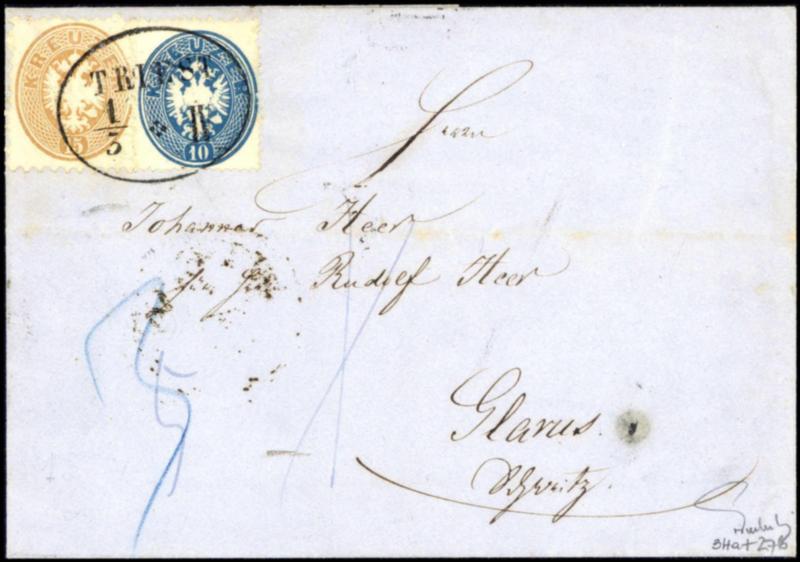 KREUZER
15
KREUZER
10
TRIEST
1
3
II
Herrn
Johannes Heer
Rudolf Heer
Glarus.
Schweitz.
34a + 27b